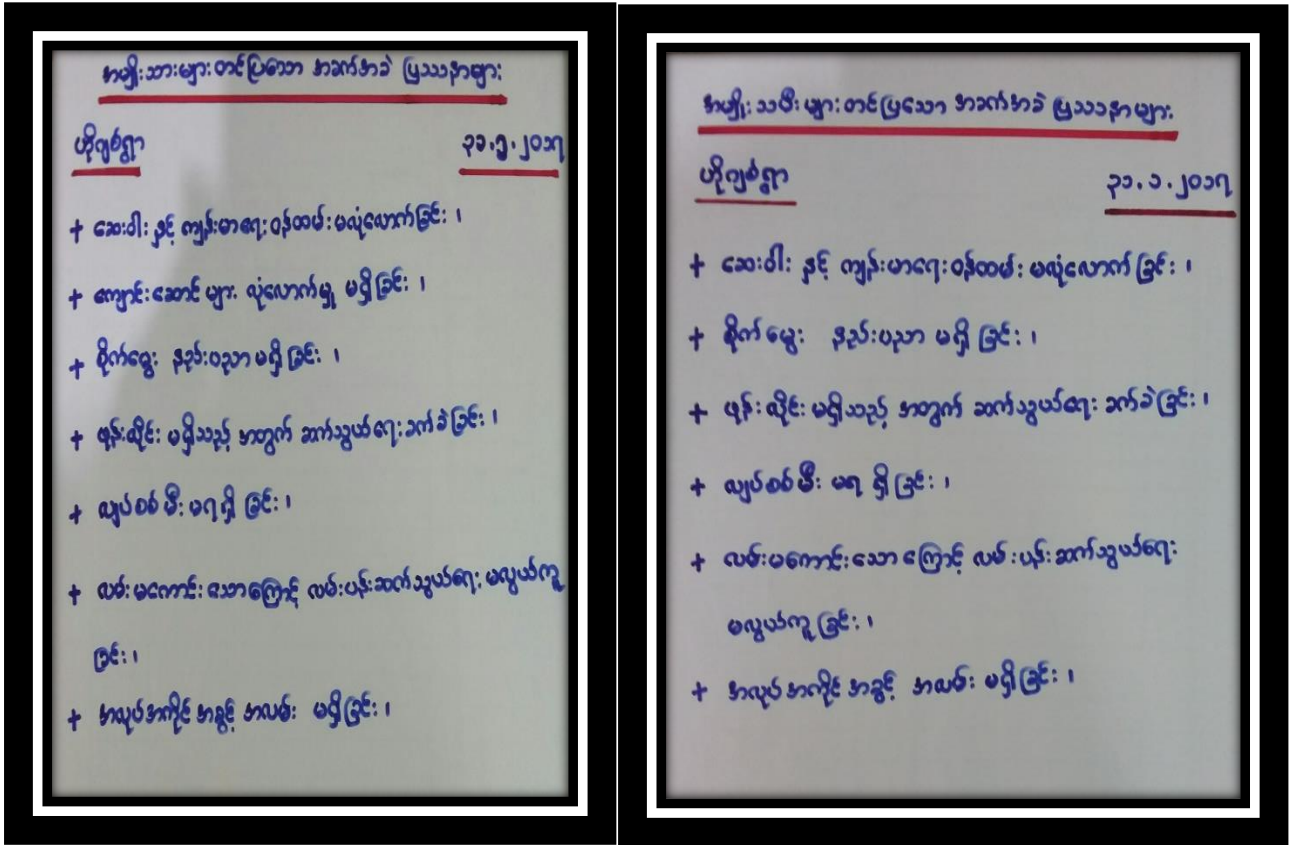 အမျိုးသားများတင်ပြသော အခက်အခဲ ပြဿနာများ
ဟိုဂျစ်ရွာ
၃၁.၅.၂၀၁၇
+ ဆေးဝါး နှင့် ကျန်းမာရေး ဝန်ထမ်း မလုံလောက်ခြင်း ၊
+ ကျောင်းဆောင် များ လုံလောက်မှု မရှိခြင်း ၊
+ စိုက်မွေး နည်းပညာ မရှိ ခြင်း ၊
+ ဖုန်းလိုင်း မရှိသည့် အတွက် ဆက်သွယ်ရေး ခက်ခဲခြင်း ၊
+ လျပ်စစ်မီး မရရှိ ခြင်း ၊
+ လမ်းမကောင်းသောကြောင့် လမ်းပန်းဆက်သွယ်ရေး မလွယ်ကူ
ခြင်း ၊
+ အလုပ်အကိုင် အခွင့် အလမ်း မရှိခြင်း ၊
အမျိုးသမီးများတင်ပြသော အခက်အခဲ ပြဿနာများ
ဟိုဂျစ်ရွာ
၃၁.၁.၂၀၁၇
+ ဆေးဝါး နှင့် ကျန်းမာရေးဝန်ထမ်း မလုံလောက် ခြင်း ၊
+ စိုက်မွေး နည်းပညာ မရှိ ခြင်း ၊
+ ဖုန်းလိုင်း မရှိသည့် အတွက် ဆက်သွယ်ရေး ခက်ခဲခြင်း ၊
+ လျပ်စစ်မီး မရ ရှိ ခြင်း ၊
+ လမ်းမကောင်းသော ကြောင့် လမ်းပန်းဆက်သွယ်ရေး
မလွယ်ကူ ခြင်း ၊
+ အလုပ်အကိုင် အခွင့် အလမ်း မရှိခြင်း ၊